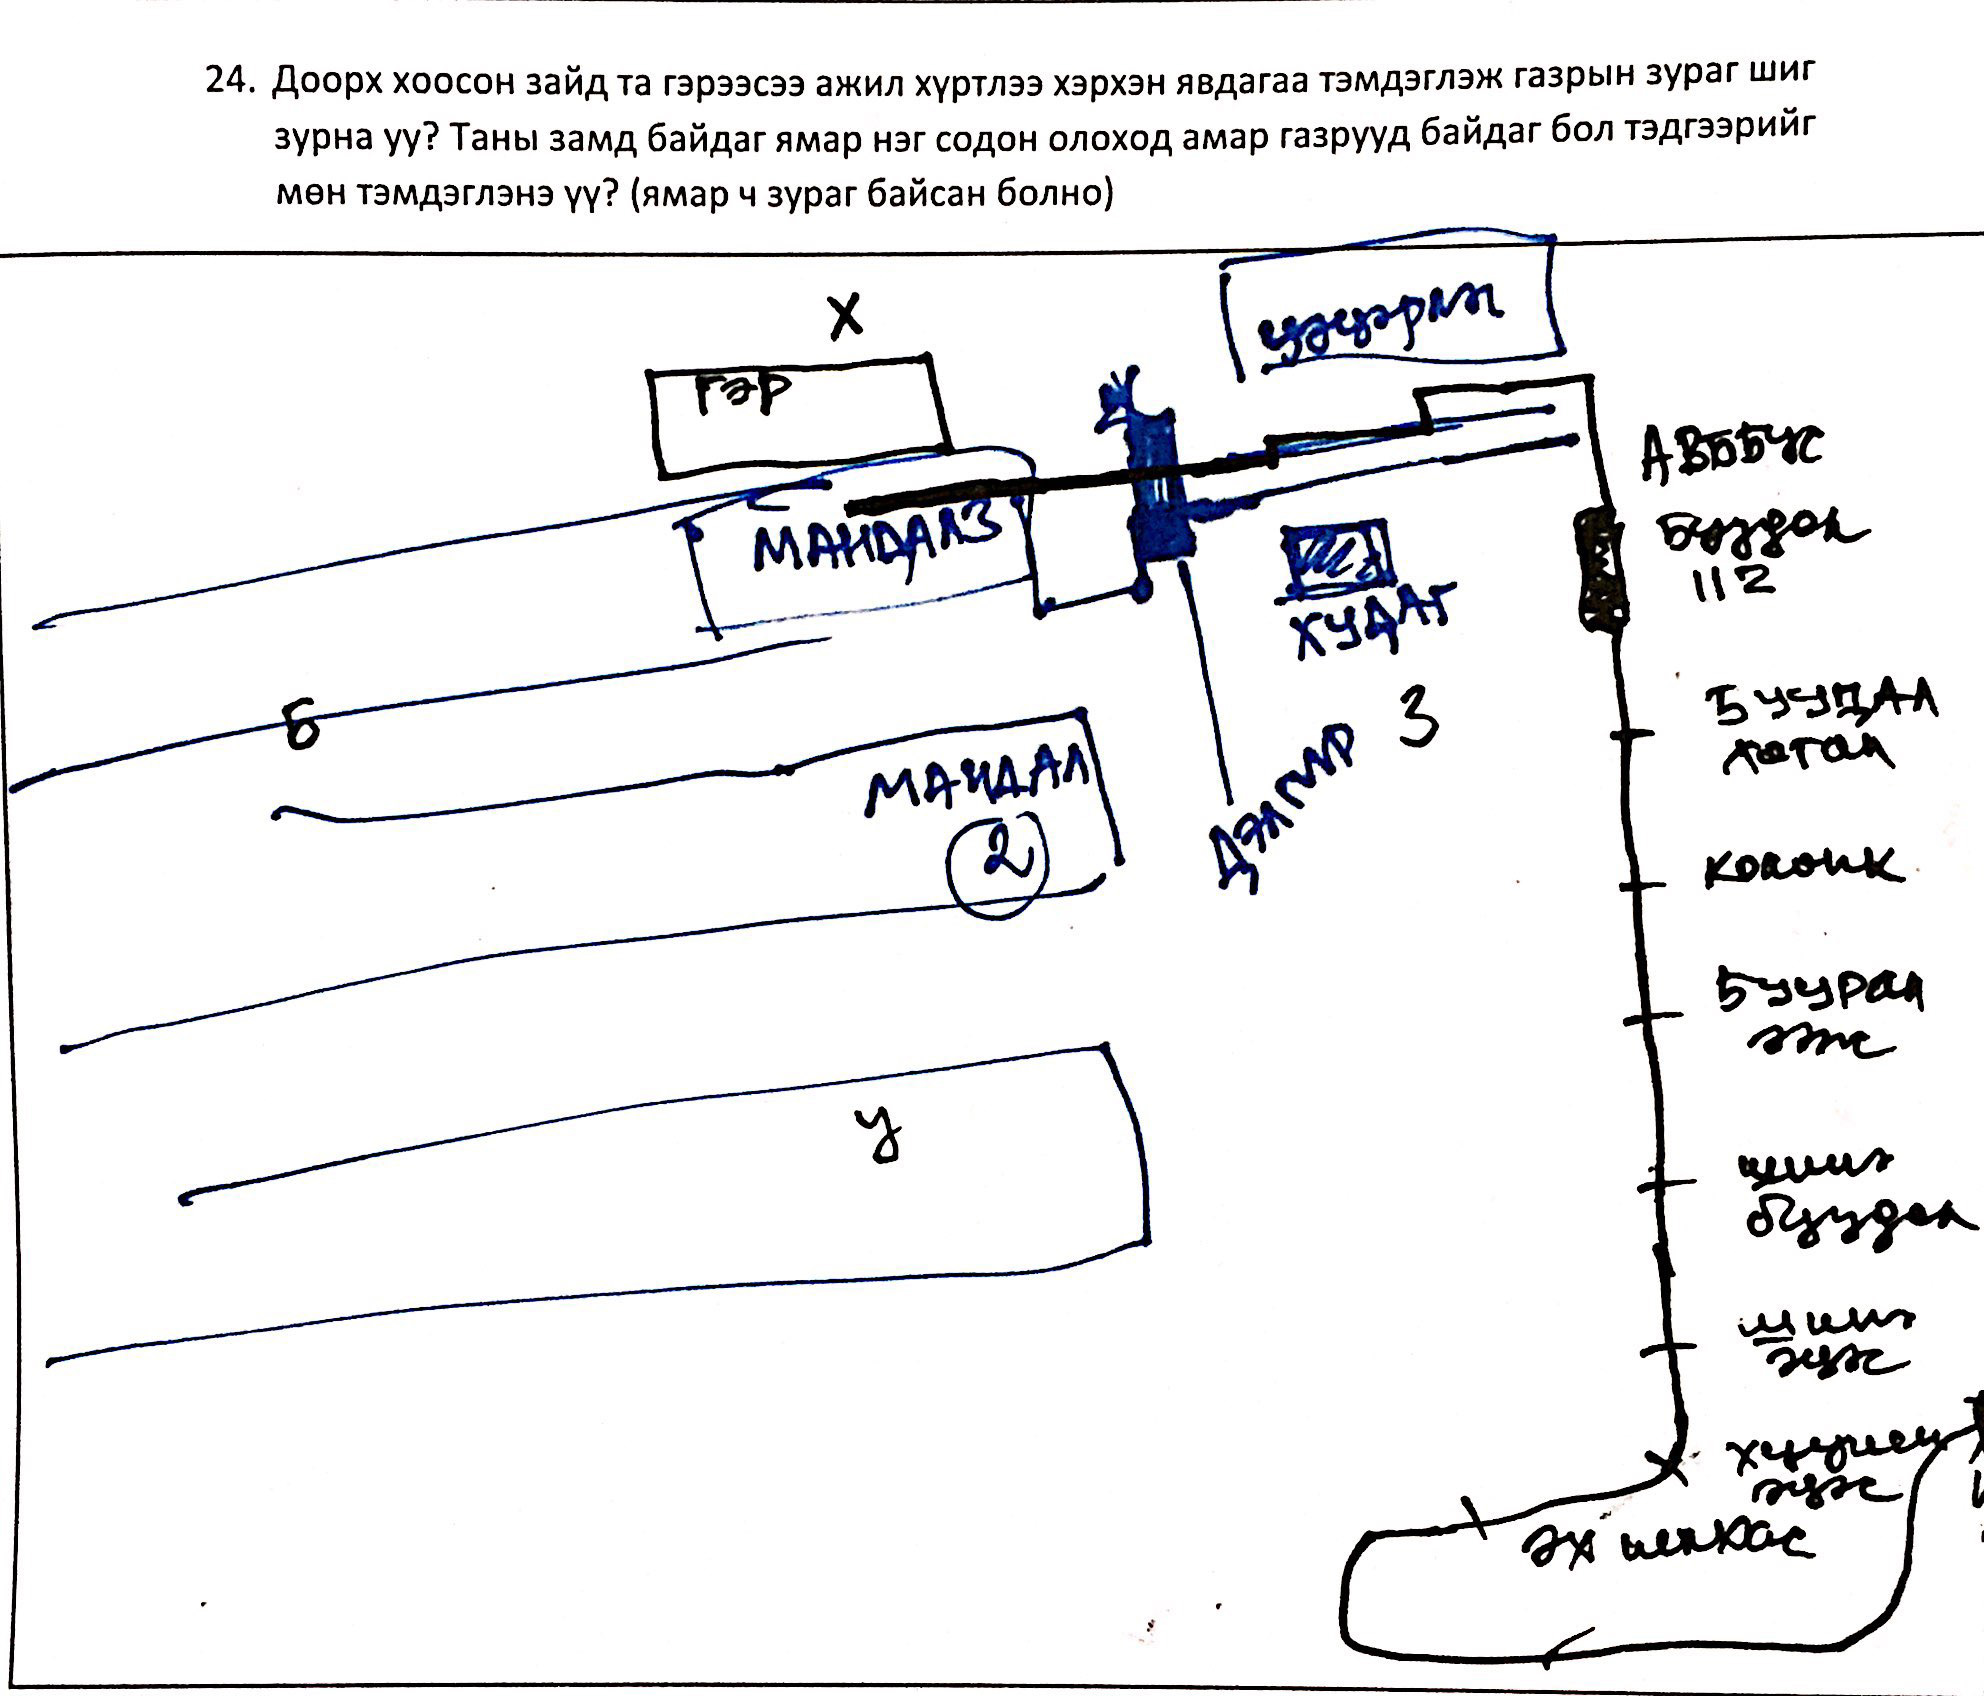 24. Доорх хоосон зайд та гэрээсээ ажил хүртлээ хэрхэн явдагаа тэмдэглэж газрын зураг шиг
зурна уу? Таны замд байдаг ямар нэг содон олоход амар газрууд байдаг бол тэдгээрийг
мөн тэмдэглэнэ үү? (ямар ч зураг байсан болно)
Х
цэцэрлэг
гэр
МАНДАЛ 3
АВББУС
Буудал
112
ХУДАГ
Б
БУУДАЛ
хатан
МАНДАЛ
2
Дэлгүүр 3
колонк
Буурал
ээж
У
шинэ
буудал
шинэ
эцэс
хуучин
эцэс
эх